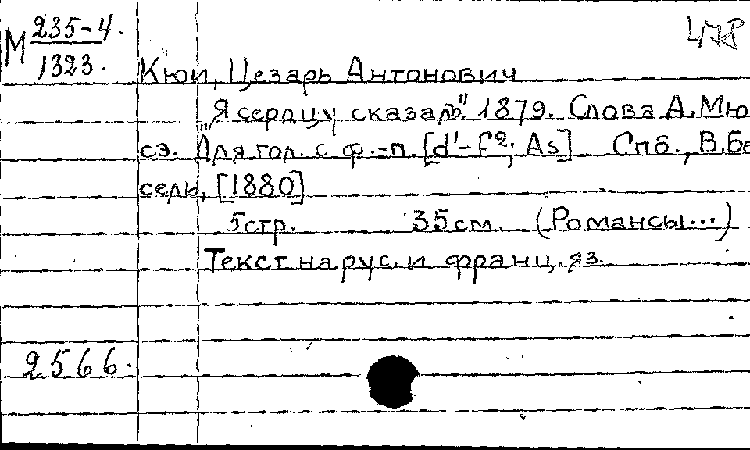 М 235-4.
1323.
478
Кюи, Цезарь Антонович
„Я сердцу сказал". 1879. Слова А. Мю
сэ. Для гол. с ф.-п. [d¹-f²; As] Спб., В. Бес
сель, [1880]
5 стр. 35 см. (Романсы...)
Текст на рус. и франц. яз.
2566.